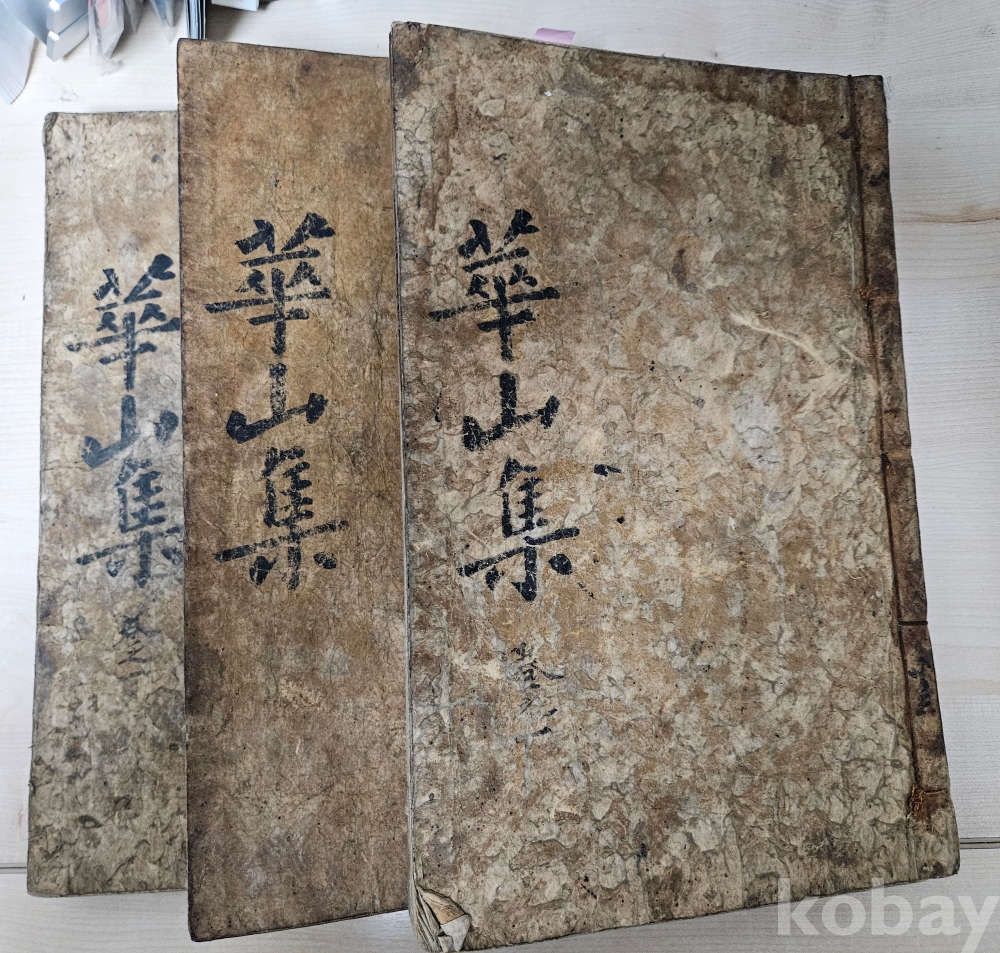 華山集
華山集
華山集
kobay